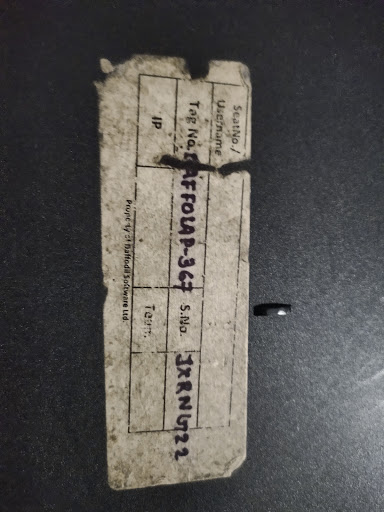 SeatNo./
Username
Tag No. DAFFOLAP-367 S.No.
IP Team.
Property of Daffodil Software Ltd.